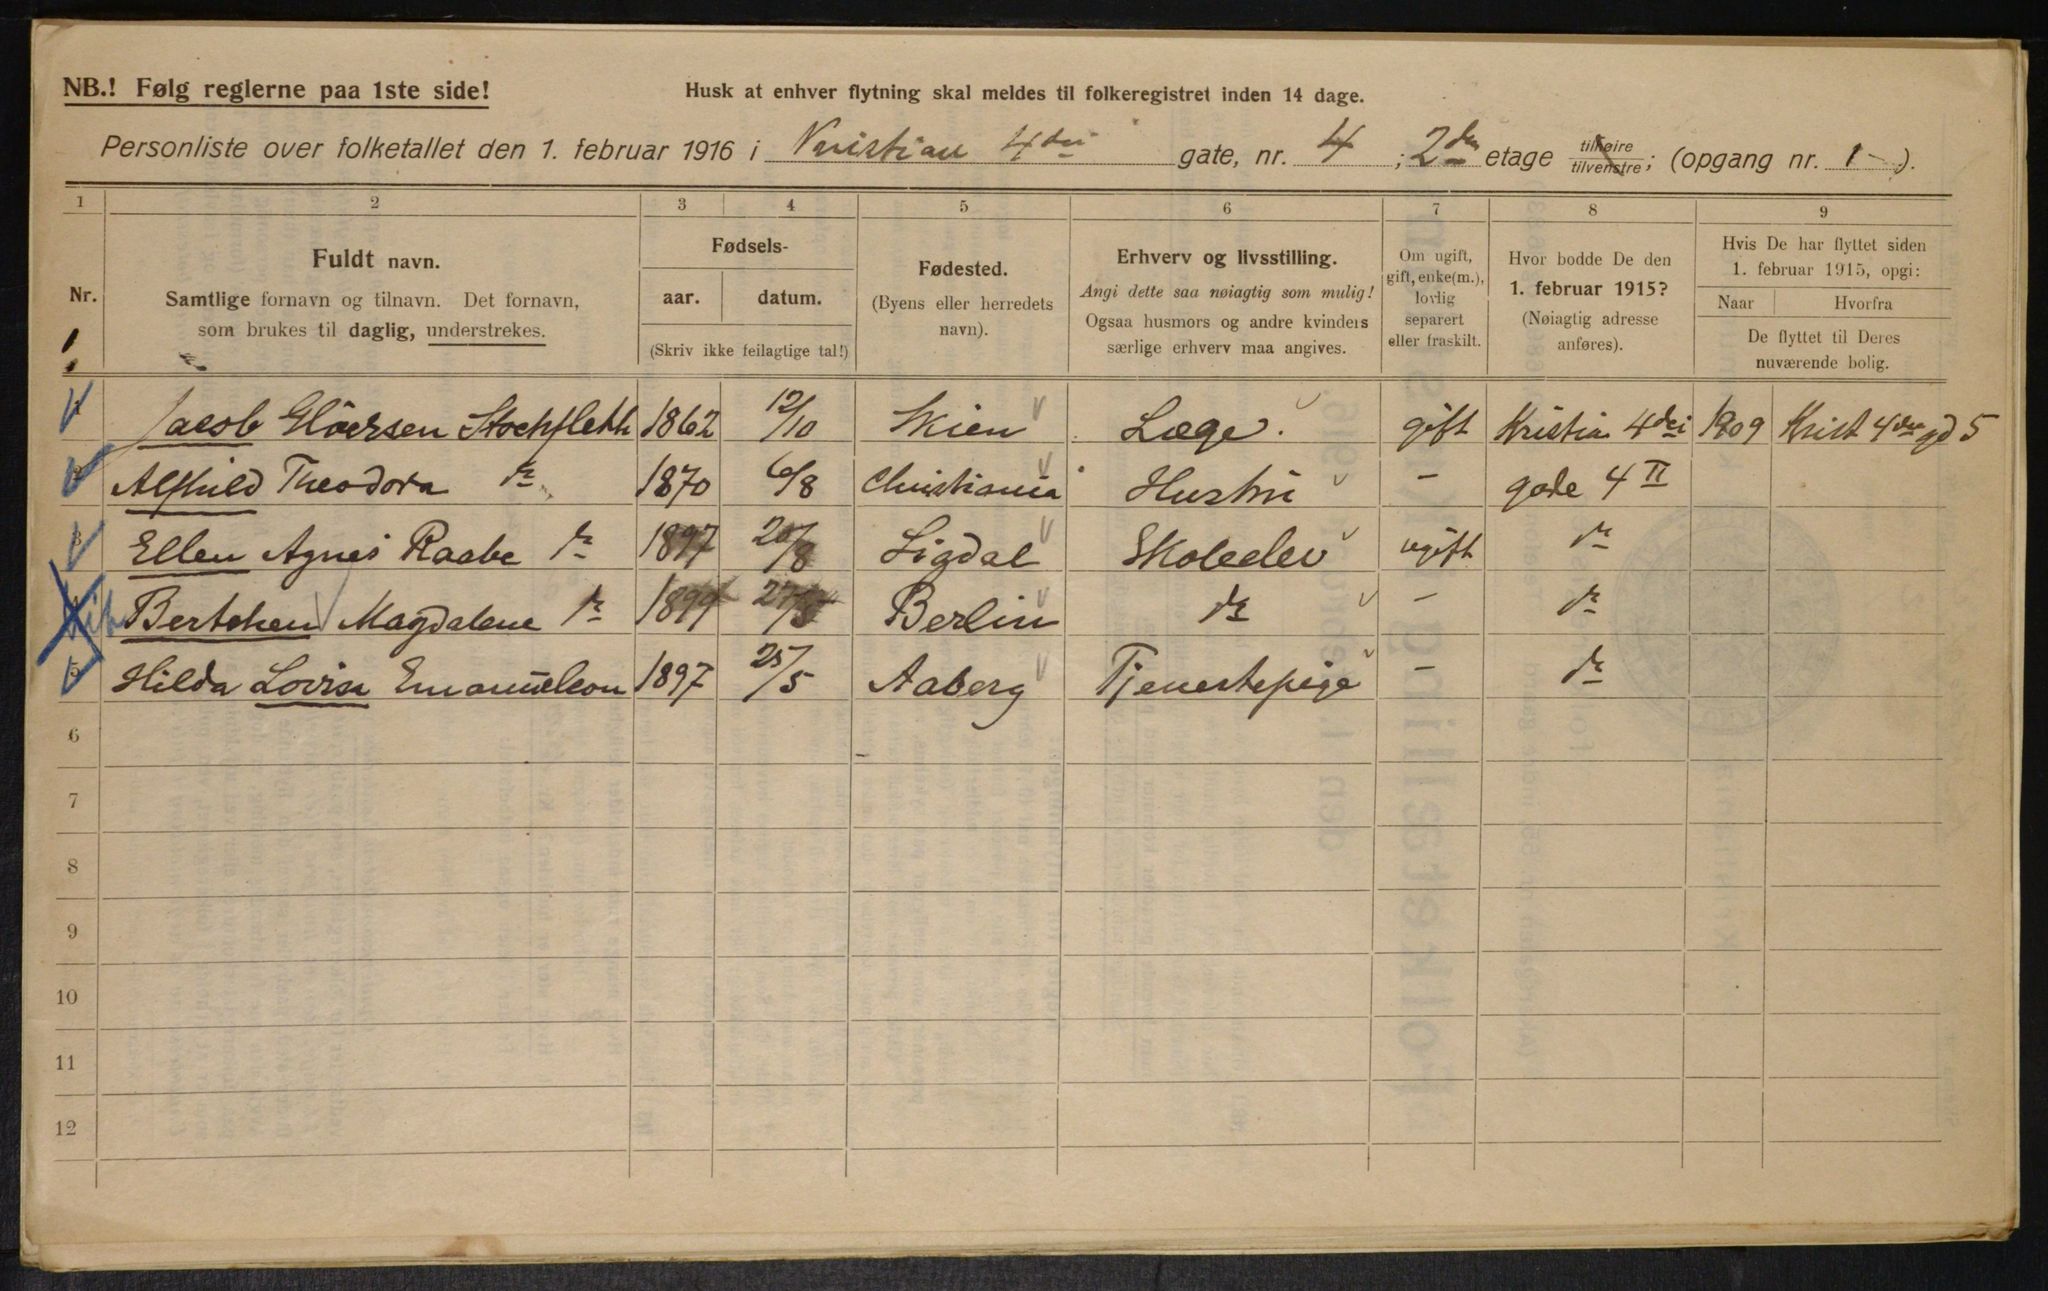 NB.! Følg reglerne paa 1ste side!
Husk at enhver flytning skal meldes til folkeregistret inden 14 dage.
Personliste over folketallet den 1. februar 1916 i Kristian 4des gate, nr. 4; 2den etage tilhøire tilvenstre; (opgang nr. 1).
1 2 3 4 5 6 7 8 9
Nr.
Fuldt navn.
Samtlige fornavn og tilnavn. Det fornavn,
som brukes til daglig, understrekes.
Fødsels-
aar. datum.
(Skriv ikke feilagtige tal!)
Fødested.
(Byens eller herredets
navn).
Erhverv og livsstilling.
Angi dette saa nøiagtig som mulig!
Ogsaa husmors og andre kvinders
særlige erhverv maa angives.
Om ugift,
gift, enke(m.),
lovlig
separert
eller fraskilt.
Hvor bodde De den
1. februar 1915?
(Nøiagtig adresse
anføres).
Hvis De har flyttet siden
1. februar 1915, opgi:
Naar Hvorfra
De flyttet til Deres
nuværende bolig.
1 Jacob Gløersen Stockfleth 1862 12/10 Skien Læge. gift Kristian 4des 1909 Krist 4des gd 5
2 Alfhild Theodora do 1870 6/8 Christiania Hustru - gade 4 II
3 Ellen Agnes Raabe do 1897 20/8 Sigdal Skoleelev ugift do
4 Bertchen Magdalene do 1899 Berlin do - do
5 Hilda Lovisa Emanuelson 1897 25/5 Aaberg Tjenestepige - do
6
7
8
9
10
11
12